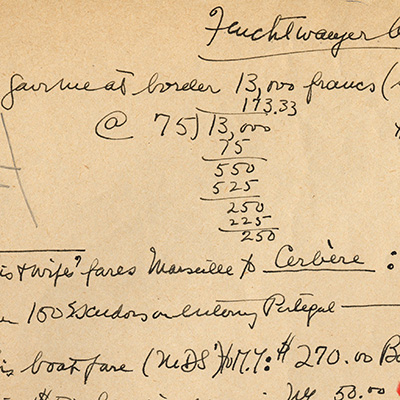 Feuchtwanger
Gave me at border 13,000 francs (
173.33
@ 75)13,000
75
550
525
250
225
250
is + wife's fares Marseille to Cerbère :
150 Escudos on entering Portugal
is boat fare ( to N.Y: $ 270.00
50.00